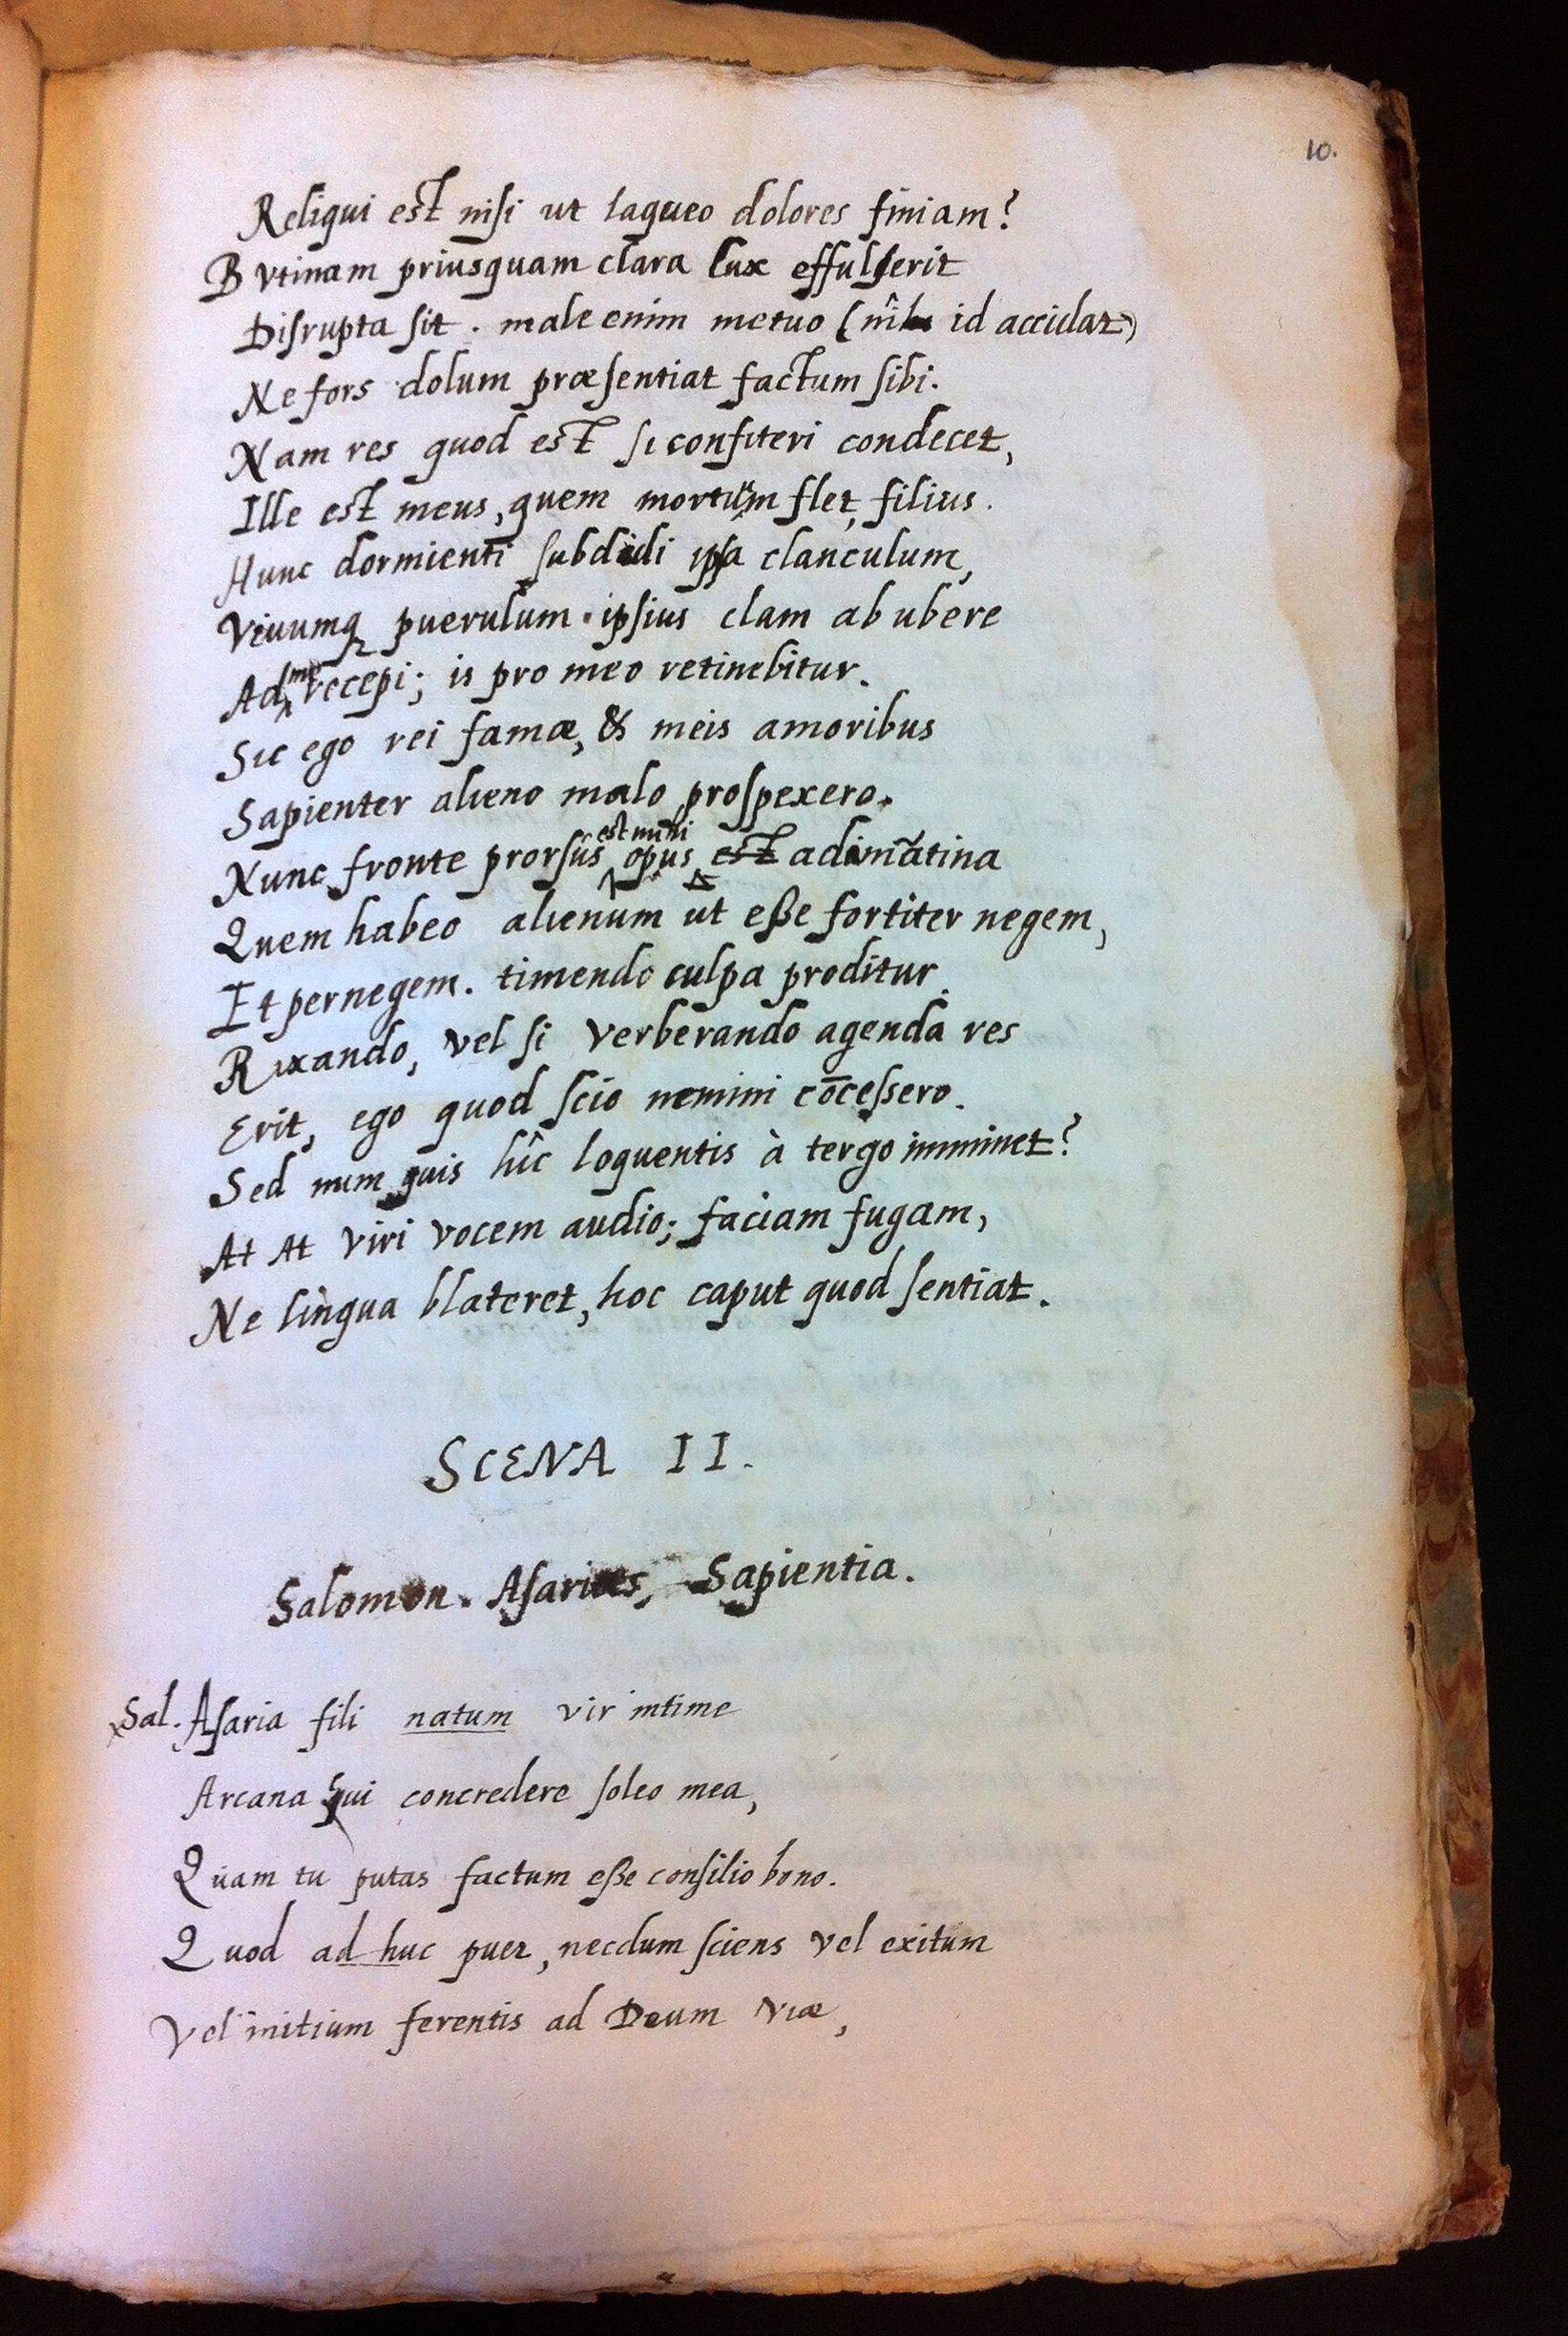 10.
Religui est nisi ut laqueo dolores finiam?
B Vtinam priusquam clara lux effulserit
Disrupta sit. male enim metuo ( id accidat)
Ne fors dolum præsentiat factum sibi.
Nam res quod est si confiteri condecet,
Ille est meus, quem mortuum flet, filius.
Hunc dormienti subdidi ipsa clanculum,
Viuumq puerulum ipsius clam ab ubere
Ad me recepi; is pro meo retinebitur.
Sic ego rei famæ, & meis amoribus
Sapienter alieno malo prospexero.
Nunc fronte prorsus est mihi opus est adimãtina
Quem habeo alienum ut eße fortiter negem,
Et pernegem. timendo culpa proditur.
Rixando, vel si verberando agenda res
Erit, ego quod scio nemini cõcessero.
Sed num quis hîc loquentis à tergo imminet?
At At viri vocem audio; faciam fugam,
Ne lingua blateret, hoc caput quod sentiat.
SCENA II.
Salomon. Asaries, Sapientia.
Sal. Asaria fili natum vir intime
Arcana qui concredere soleo mea,
Quam tu putas factum eße consilio bono.
Quod ad huc puer, necdum sciens vel exitum
Vel initium ferentis ad Deum viæ,